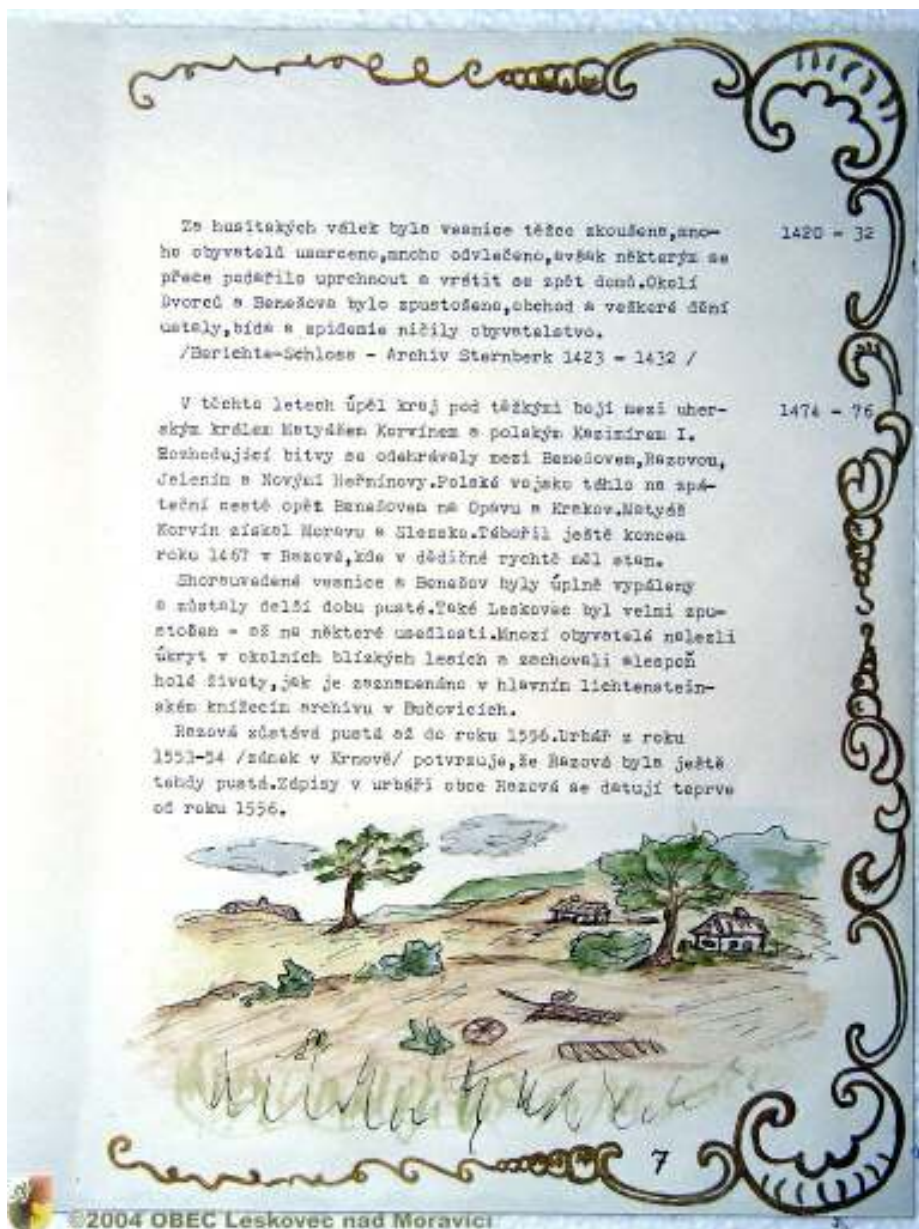 Za husitských válek byla vesnice těžce zkoušena,mno- 1420 - 32
ho obyvatelů usmrceno,mnoho odvlečeno,avšak některým se
přece podařilo uprchnout a vrátit se zpět domů.Okolí
Dvorců a Benešova bylo zpustošeno,obchod a veškeré dění
ustaly,bída a epidemie ničily obyvatelstvo.
/Berichte-Schloss - Archiv Sternberk 1423 - 1432 /
V těchto letech úpěl kraj pod těžkými boji mezi uher- 1474 - 76
ským králem Matyášem Korvínem a polským Kazimírem I.
Rozhodující bitvy se odehrávaly mezi Benešovem,Razovou,
Jelením a Novými Heřmínovy.Polské vojsko táhlo na zpá-
teční cestě opět Benešovem na Opavu a Krakov.Matyáš
Korvín získal Moravu a Slezsko.Tábořil ještě koncem
roku 1467 v Razové,kde v dědičné rychtě měl stan.
Shorauvedené vesnice a Benešov byly úplně vypáleny
a zůstaly delší dobu pusté.Také Leskovec byl velmi zpu-
stošen - až na některé usedlosti.Mnozí obyvatelé nalezli
úkryt v okolních blízkých lesích a zachovali alespoň
holé životy,jak je zaznamenáno v hlavním lichtenstein-
ském knížecím archivu v Bučovicích.
Razová zůstává pustá až do roku 1556.Urbář z roku
1553-54 /zámek v Krnově/ potvrzuje,že Razová byla ještě
tehdy pustá.Zápisy v urbáři obce Razová se datují teprve
od roku 1556.
7
©2004 OBEC Leskovec nad Moravicí